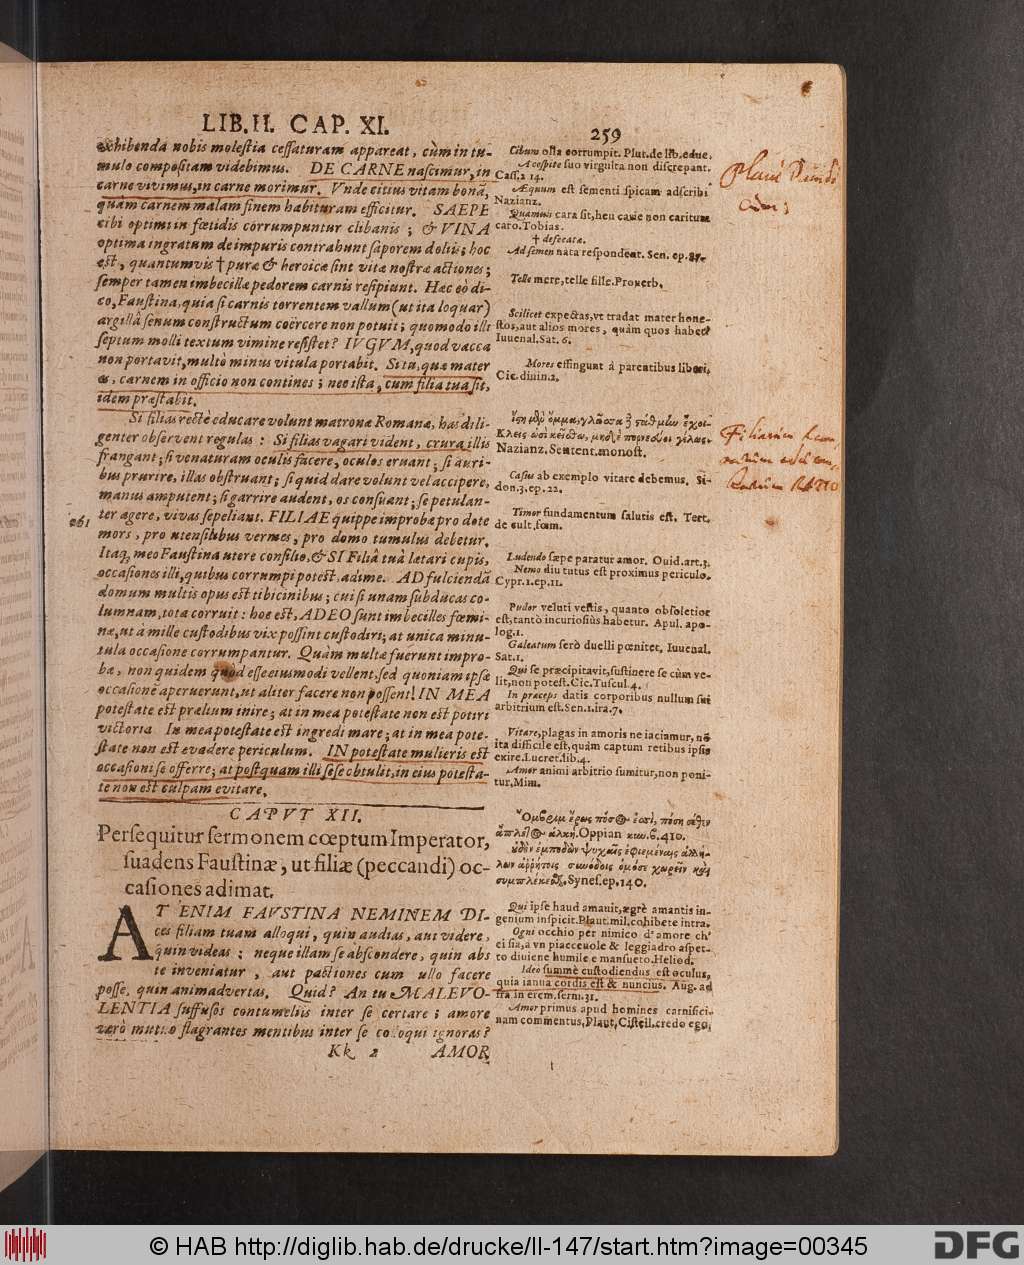 LIB. II. CAP. XI. 259
exhibenda nobis molestia cessaturam appareat, cùm in tu-
mulo compositam videbimus. DE CARNE nascimur, in
carne vivimus, in carne morimur. Vnde citius vitam bonã,
quàm carnem malam finem habituram efficitur. SAEPE
cibi optimi in fœtidis corrumpuntur clibanis; & VINA
optima ingratum de impuris contrahunt saporem doliis; hoc
est, quantumvis † puræ & heroicæ sint vitæ nostræ actiones;
semper tamen imbecillæ pedorem carnis resipiunt. Hæc eò di-
co, Faustina, quia si carnis torrentem vallum (ut ita loquar)
argillâ senum constructum coërcere non potuit; quomodo illi
septum molli textum vimine resistet? IVGVM, quod vacca
non portavit, multò minus vitula portabit. Si tu, quæ mater
es, carnem in officio non contines; nec ista, cum filia tua sit,
idem præstabit.
Si filias rectè educare volunt matronæ Romanæ, has dili-
genter observent regulas: Si filias vagari vident, crura illis
frangant; si venaturam oculis facere, oculos eruant; si auri-
bus prurire, illas obstruant; si quid dare volunt vel accipere,
manus amputent; si garrire audent, os consuant; se petulan-
ter agere, vivas sepeliant. FILIAE quippe improbæ pro dote
mors, pro utensilibus vermes, pro domo tumulus debetur.
Itaq, meo Faustina utere consilio, & SI Filiâ tuâ lætari cupis,
occasiones illi, quibus corrumpi potest, adime. AD fulciendã
domum multis opus est tibicinibus; cui si unam subducas co-
lumnam, tota corruit: hoc est, ADEO sunt imbecilles fœmi-
næ, ut à mille custodibus vix possint custodiri; at unica minu-
tula occasione corrumpantur. Quàm multæ fuerunt impro-
bæ, non quidem quòd esse eiusmodi vellent, sed quoniam ipsæ
occasionē aperuerunt, ut aliter facere non possent! IN MEA
potestate est prælium inire; at in mea potestate non est potiri
victoria. In mea potestate est ingredi mare; at in mea pote-
state non est evadere periculum. IN potestate mulieris est
occasioni se offerre; at postquam illi sese obtulit, in eius potesta-
te non est culpam evitare.
CAPVT XII.
Persequitur sermonem cœptum Imperator,
suadens Faustinæ, ut filiæ (peccandi) oc-
casiones adimat.
AT ENIM FAVSTINA NEMINEM DI-
ces filiam tuam alloqui, quin audias, aut videre,
quin videas; neque illam se abscondere, quin abs
te inveniatur, aut pactiones cum ullo facere
posse, quin animadvertas. Quid? An tu MALEVO-
LENTIA suffusos contumeliis inter se certare; amore
verò mutuo flagrantes mentibus inter se colloqui ignoras?
Kk 2 AMOR
Cibum olla corrumpit. Plut. de lib. educ.
A cespite suo virgulta non discrepant.
Cass. 2 14.
Æquum est sementi spicam adscribi
Nazianz.
Quamuis cara sit, heu carie non caritura
caro. Tobias.
† defecatæ.
Ad semen nata respondent. Sen. ep. 87.
Telle mere, telle fille. Prouerb.
Scilicet expectas, vt tradat mater hone-
stos, aut alios mores, quàm quos habet
Iuuenal. Sat. 6.
Mores effingunt à parentibus liberi.
Cic. diuin. 2.
Nazianz. Sentent. monost.
Casus ab exemplo vitare debemus. Si-
don. 3. ep. 22.
Timor fundamentum salutis est. Tert.
de cult. fœm.
Ludendo sæpe paratur amor. Ouid. art. 3.
Nemo diu tutus est proximus periculo.
Cypr. 1. ep. 11.
Pudor veluti vestis, quanto obsoletior
est, tantò incuriosiùs habetur. Apul. apo-
log. 1.
Galeatum serò duelli pœnitet. Iuuenal.
Sat. 1.
Qui se præcipitavit, sustinere se cùm ve-
lit, non potest. Cic. Tuscul. 4.
In præceps datis corporibus nullum sui
arbitrium est. Sen. 1. ira. 7.
Vitare, plagas in amoris ne iaciamur, nō
ita difficile est, quàm captum retibus ipsis
exire. Lucret. lib. 4.
Amor animi arbitrio sumitur, non poni-
tur. Mim.
Oppian
410.
Synes. ep. 140.
Qui ipse haud amauit, ægrè amantis in-
genium inspicit. Plaut. mil. cohibete intra.
Ogni occhio per nimico d'amore ch'
ei sia, a vn piaceuole & leggiadro aspet-
to diuiene humile e mansueto. Heliod.
Ideo summè custodiendus est oculus,
quia ianua cordis est & nuncius. Aug. ad
fra. in erem. serm. 31.
Amor primus apud homines carnifici-
nam commentus. Plaut. Cistell. credo ego.
© HAB http://diglib.hab.de/drucke/ll-147/start.htm?image=00345
DFG